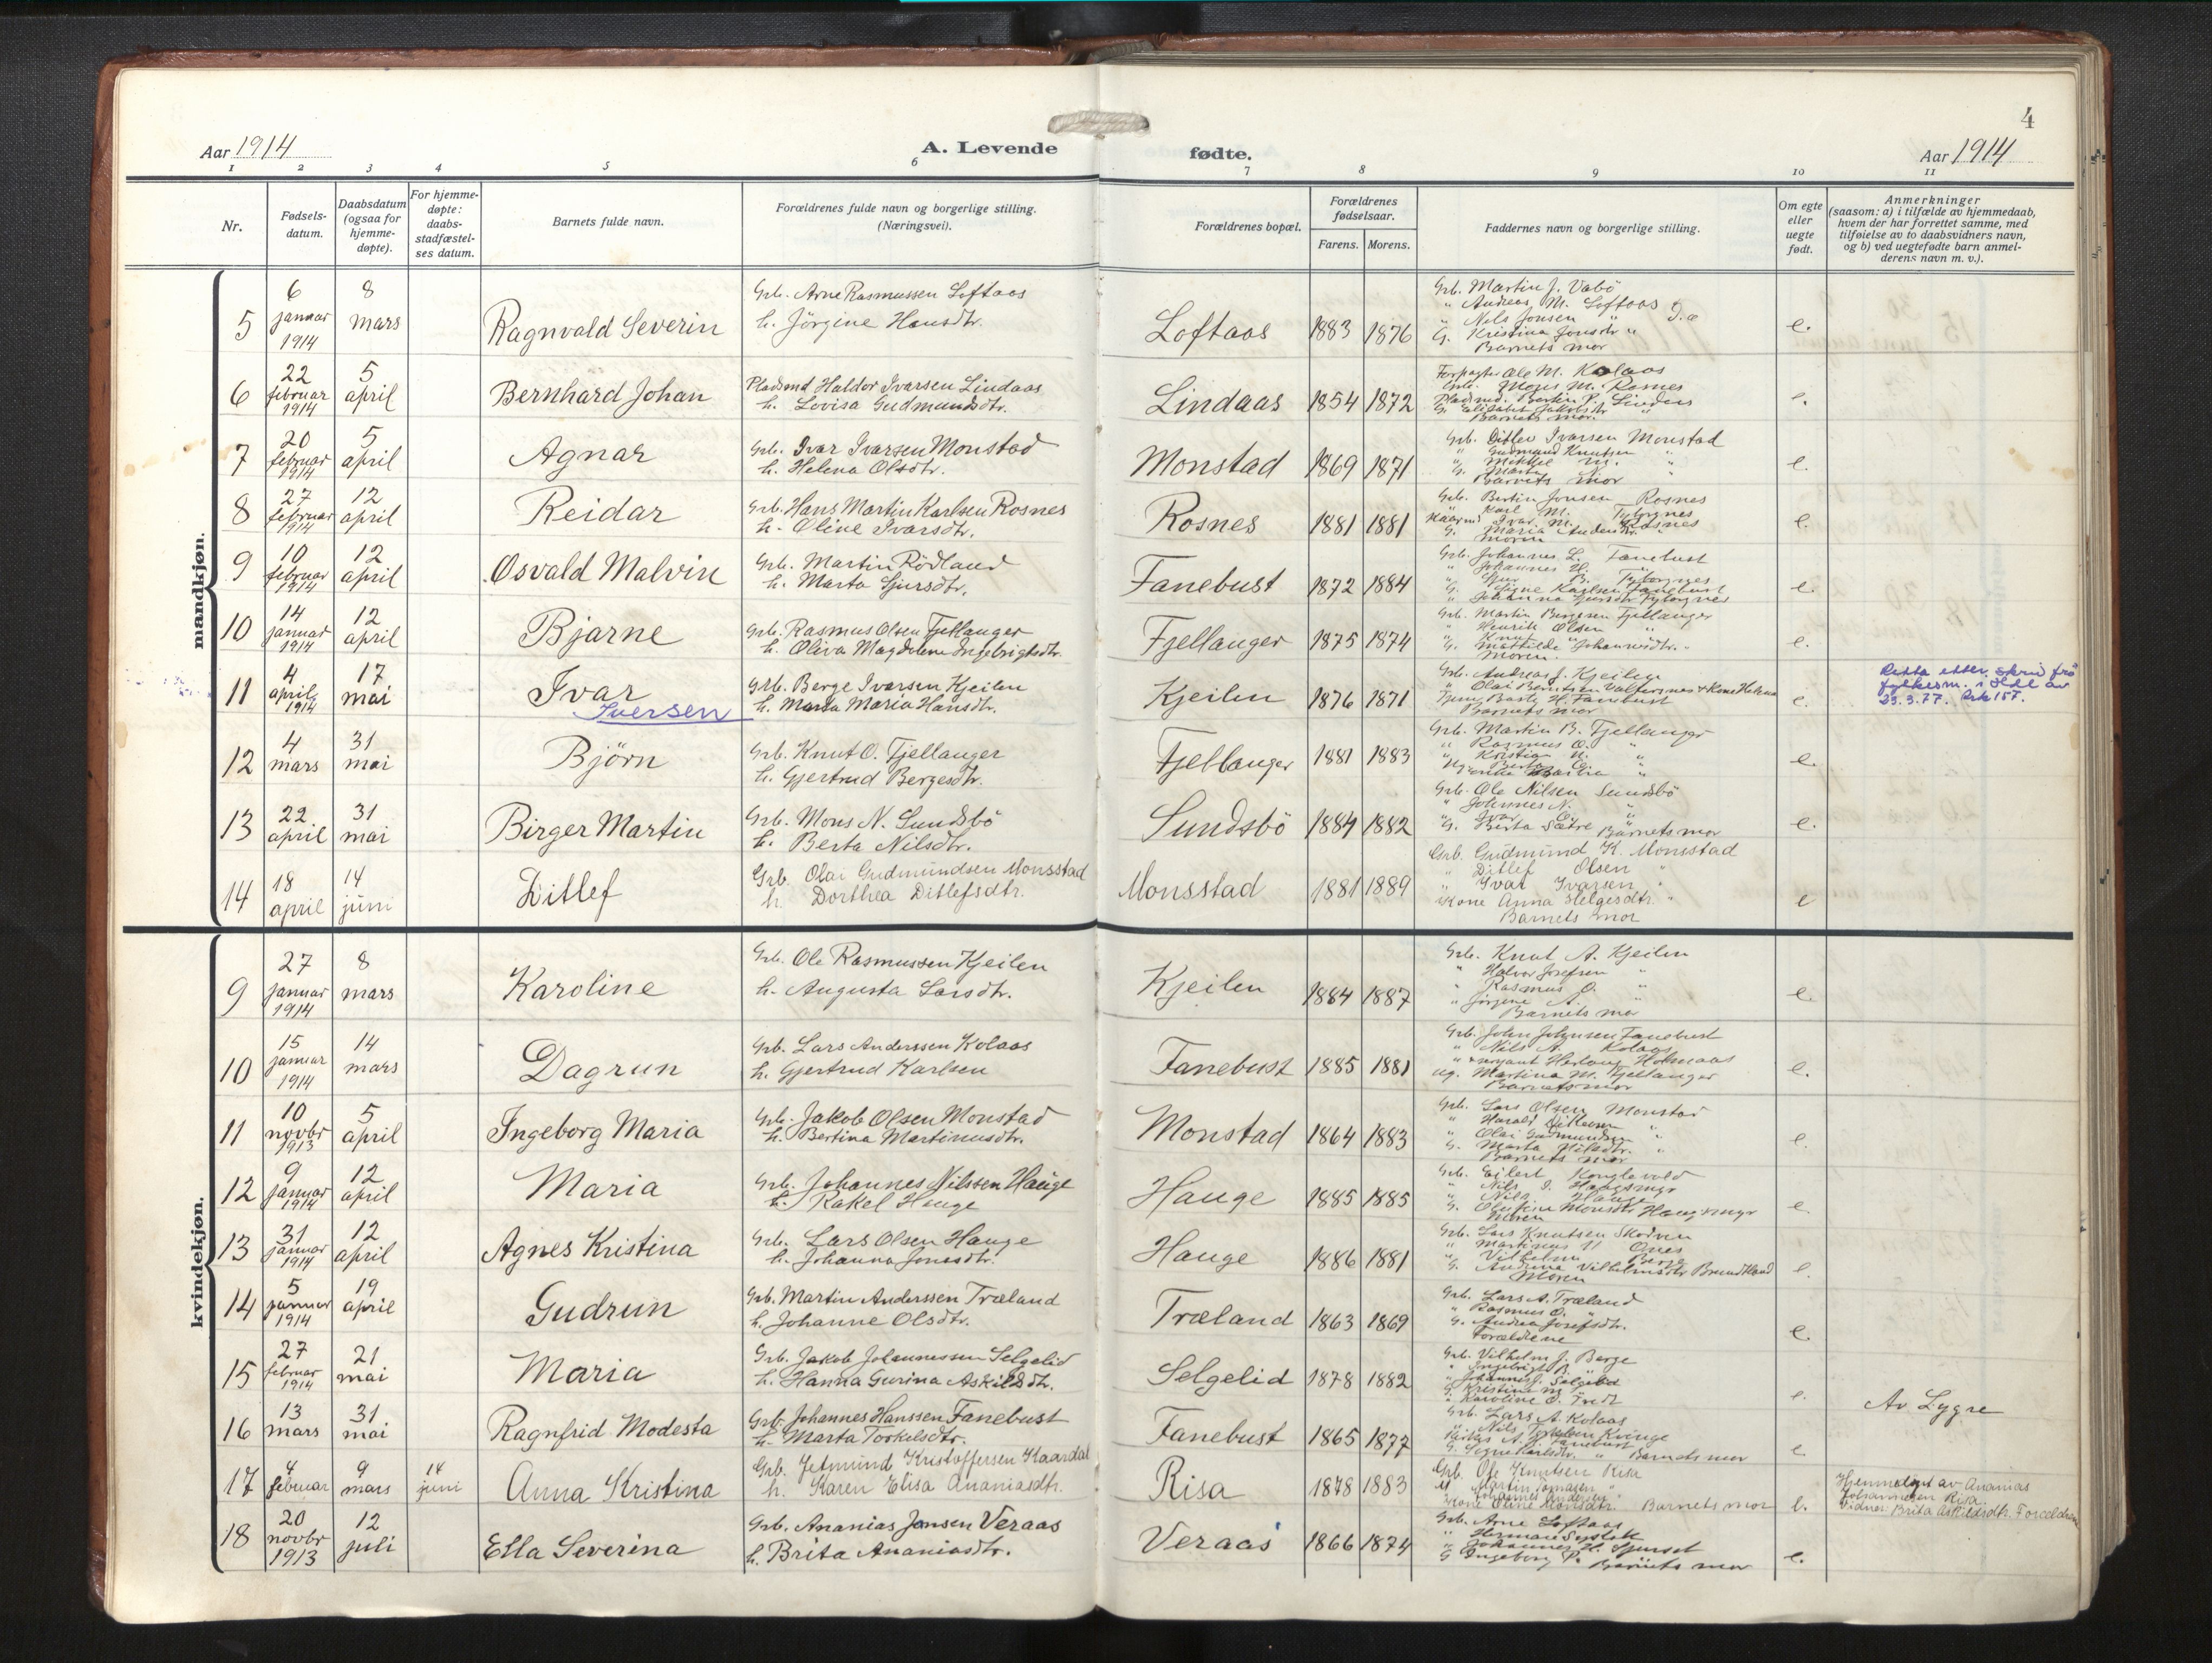 4
Aar 1914
A. Levende
fødte.
Aar 1914
1 2 3 4 5 6 7 8 9 10 11
Nr.
Fødsels-
datum.
Daabsdatum
(ogsaa for
hjemme-
døpte).
For hjemme-
døpte:
daabs-
stadfæstel-
ses datum.
Barnets fulde navn.
Forældrenes fulde navn og borgerlige stilling.
(Næringsvei).
Forældrenes bopæl.
Forældrenes
fødselsaar.
Farens. Morens.
Faddernes navn og borgerlige stilling.
Om egte
eller
uegte
født.
Anmerkninger
(saasom: a) i tilfælde av hjemmedaab,
hvem der har forrettet samme, med
tilføielse av to daabsvidners navn,
og b) ved uegtefødte barn anmel-
derens navn m. v.).
mandkjøn.
5
6 januar 1914
8 mars
Ragnvald Severin
Grb. Arne Rasmussen Loftaas
h. Jörgine Hansdtr.
Loftaas
1883 1876
Grb. Martin J. Vabö
" Andreas M. Loftaas
" Nils Jonsen "
G. Kristina Jonsdtr "
Barnets mor
e.
6
22 februar 1914
5 april
Bernhard Johan
Pladsmd Haldor Ivarsen Lindaas
h. Lovisa Gudmundsdtr.
Lindaas
1854 1872
Forpagter Ole M. Kolaas
Grb. Mons M. Rosnes
Pladsmd. Bertin P. Lindaas
G. Elisabet Jakobsdtr "
Barnets mor.
e.
7
20 februar 1914
5 april
Agnar
Grb. Ivar Ivarsen Monstad
h. Helena Olsdtr.
Monstad
1869 1871
Grb. Ditlev Ivarsen Monstad
" Gudmund Knutsen "
" Mikkel M. "
G. Marta N. "
Barnets mor
e.
8
27 februar 1914
12 april
Reidar
Grb. Hans Martin Karlsen Rosnes
h. Oline Ivarsdtr.
Rosnes
1881 1881
Grb. Bertin Jonsen Rosnes
" Karl M.
Ivar M. Rosnes
G. Maria
moren
e.
9
10 februar 1914
12 april
Osvald Malvin
Grb. Martin Rödland
h. Marta Sjursdtr.
Fanebust
1872 1884
Grb. Johannes L. Fanebust
" Johannes H. "
" Sjur B.
G. Signe Karlsen Fanebust
" Johanna
e.
10
14 januar 1914
12 april
Bjarne
Grb. Rasmus Olsen Fjellanger
h. Oliva Magdalena Ingebrigtsdtr.
Fjellanger
1875 1874
Grb. Martin Bergesen Fjellanger
" Henrik Olsen "
" Knut "
G. Mathilde Johannesdtr. "
moren.
e.
11
4 april 1914
17 mai
Ivar
Iversen
Grb. Berge Ivarsen Kjeilen
h. Marta Maria Hansdtr.
Kjeilen
1876 1871
Grb. Andreas J. Kjeilen
" Olai Berntsen Valfersnes + Kone Helena
H. Fanebust
Barnets mor
e.
Retta etter skriv frå
fylkesm. i Hdl av
23.3.77. Ark 157.
12
4 mars
31 mai
Björn
Grb. Knut O. Fjellanger
h. Gjertrud Bergesdtr.
Fjellanger
1881 1883
Grb. Martin B. Fjellanger
" Rasmus O. "
" Kristian N. "
" Berta O. "
e.
13
22 april
31 mai
Birger Martin
Grb. Mons N. Sundsbö
h. Berta Nilsdtr.
Sundsbö
1884 1882
Grb. Ole Nilsen Sundsbö
" Johannes N. "
" Ivar O. "
G. Berta Sætre Barnets mor
e.
14
18 april
14 juni
Ditlef
Grb. Olai Gudmundsen Monsstad
h. Dorthea Ditlefsdtr.
Monsstad
1881 1889
Grb. Gudmund K. Monsstad
" Ditlef Olsen "
" Ivar Ivarsen "
Kone Anna Helgesdtr. "
Barnets mor
e
kvindekjøn.
9
27 januar 1914
8 mars
Karoline
Grb. Ole Rasmussen Kjeilen
h. Augusta Larsdtr.
Kjeilen
1884 1887
Grb. Knut A. Kjeilen
" Halvor Josefsen "
" Rasmus O. "
" Jörgine A. "
Barnets mor
e.
10
15 januar 1914
14 mars
Dagrun
Grb. Lars Anderssen Kolaas
h. Gjertrud Karlsen
Fanebust
1885 1881
Grb. John Johnsen Fanebust
" Nils A. Kolaas
" sersjant Herlaug Holmaas
Ug. Martina M. Fjellanger
Barnets mor
e.
11
10 novbr 1913
5 april
Ingeborg Maria
Grb. Jakob Olsen Monstad
h. Bertina Martinusdtr.
Monstad
1864 1883
Grb. Lars Olsen Monstad
" Harald Ditlevsen "
" Olai Gudmundsen "
G. Marta Nilsdtr. "
Barnets mor
e.
12
9 januar 1914
12 april
Maria
Grb. Johannes Nilssen Hauge
h. Rakel Hauge
Hauge
1885 1885
Grb. Eilert Konglevold
" Nils J. Haugsmyr
" Nils Hauge
G. Monsdtr. Haugsmyr
Moren
e.
13
31 januar 1914
12 april
Agnes Kristina
Grb. Lars Olsen Hauge
h. Johanna Jonsdtr.
Hauge
1886 1881
Grb. Lars Knutsen Skodven
" Martinus
" Vilhelm Berg
G. Andrina Vilhelmsdtr
Moren
e.
14
5 januar 1914
19 april
Gudrun
Grb. Martin Anderssen Træland
h. Johanne Olsdtr.
Træland
1863 1869
Grb. Lars A. Træland
" Rasmus O. "
G. Andrea Josefsdtr.
Forældrene
e.
15
27 februar 1914
21 mai
Maria
Grb. Jakob Johannessen Selgelid
h. Hanna Gurina Askildsdtr.
Selgelid
1878 1882
Grb. Vilhelm J. Berge
" Ingebrigt B. "
" Johannes J. Selgelid
G. Kristine M. "
" Karoline O.
e.
Av Lygre
16
13 mars
31 mai
Ragnfrid Modesta
Grb. Johannes Hanssen Fanebust
h. Marta Torkelsdtr.
Fanebust
1865 1877
Grb. Lars A. Kolaas
" Nils Torkelsen Kvinge
A. Fanebust
G. Signe Karlsdtr. " Barnets mor
e
17
4 februar
9 mars
14 juni
Anna Kristina
Grb. Jetmund Kristoffersen Kaardal
h. Karen Elisa Ananiasdtr.
Risa
1878 1883
Grb. Ole Knutsen Risa
M Martin Tomasen "
Johannes Andersen "
Kone Oline Monsdtr. Barnets mor
e.
Hjemmedøpt av Ananias
Johannesen Risa.
Vidner: Brita Askildsdtr. Forældrene
18
20 novbr 1913
12 juli
Ella Severina
Grb. Ananias Jonsen Veraas
h. Brita Ananiasdtr.
Veraas
1866 1874
Grb. Arne Loftaas
" Herman
" Johannes H.
G Ingeborg P. Barnets mor
e.